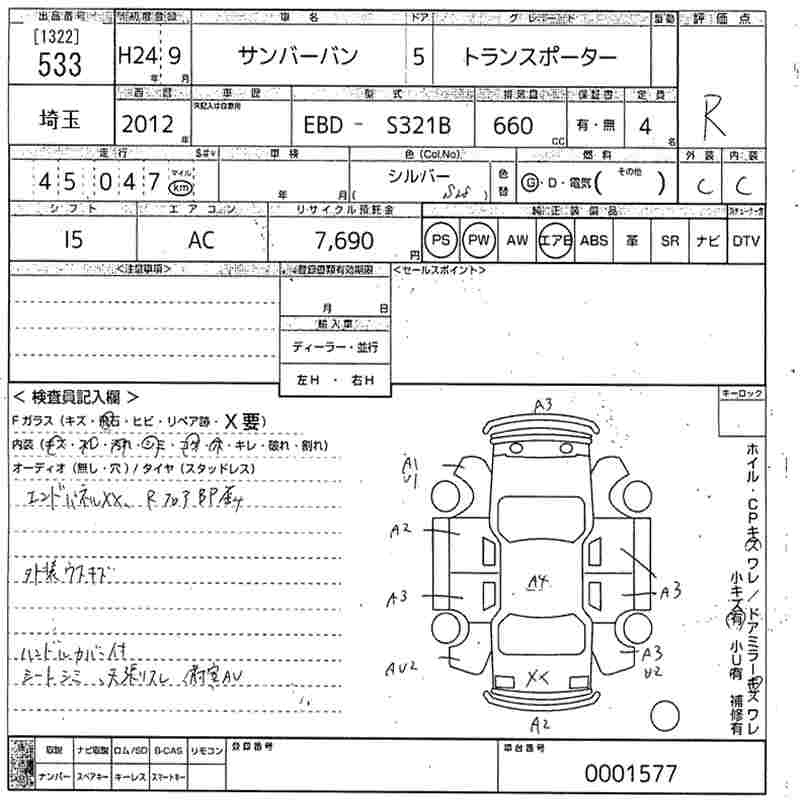 出品番号 初度登録 車名 ドア グレード 車歴 評価点
[1322]
533 H24 9 サンバーバン 5 トランスポーター R
年 月
西暦 車歴 型式 排気量 保証書 定員
未記入は自家用
埼玉 2012年 EBD - S321B 660cc 有・無 4名
走行 車検 色(Col.No) 燃料 外装 内装
45047 マイル km 年 月 シルバー ( S28 ) 色替 G・D・電気( その他 ) C C
シフト エアコン リサイクル預託金 純正装備品
I5 AC 7,690円 PS PW AW エアB ABS 革 SR ナビ DTV
<注意事項> 登録書類有効期限 <セールスポイント>
月 日
輸入車
ディーラー・並行
左H ・ 右H
< 検査員記入欄 > キーロック
Fガラス (キズ・飛石・ヒビ・リペア跡・X要)
内装 (キズ・スレ・汚れ・シミ・コゲ・穴・キレ・破れ・割れ)
オーディオ (無し・穴) / タイヤ (スタッドレス)
エンドパネルXX、Rフロア部座り
外装ウスキズ
ハンドルカバー付
シートシミ、天張リスレ
A3
A1
U1
A2
A4
A3 A3
AU2 XX A3
U2
A2
ホイル・CPキズ ワレ / ドアミラーキズ ワレ
小キズ有 小U有 補修有
取説 ナビ取説 ロム/SD B-CAS リモコン 登録番号 車台番号
ナンバー スペアキー キーレス スマートキー 0001577